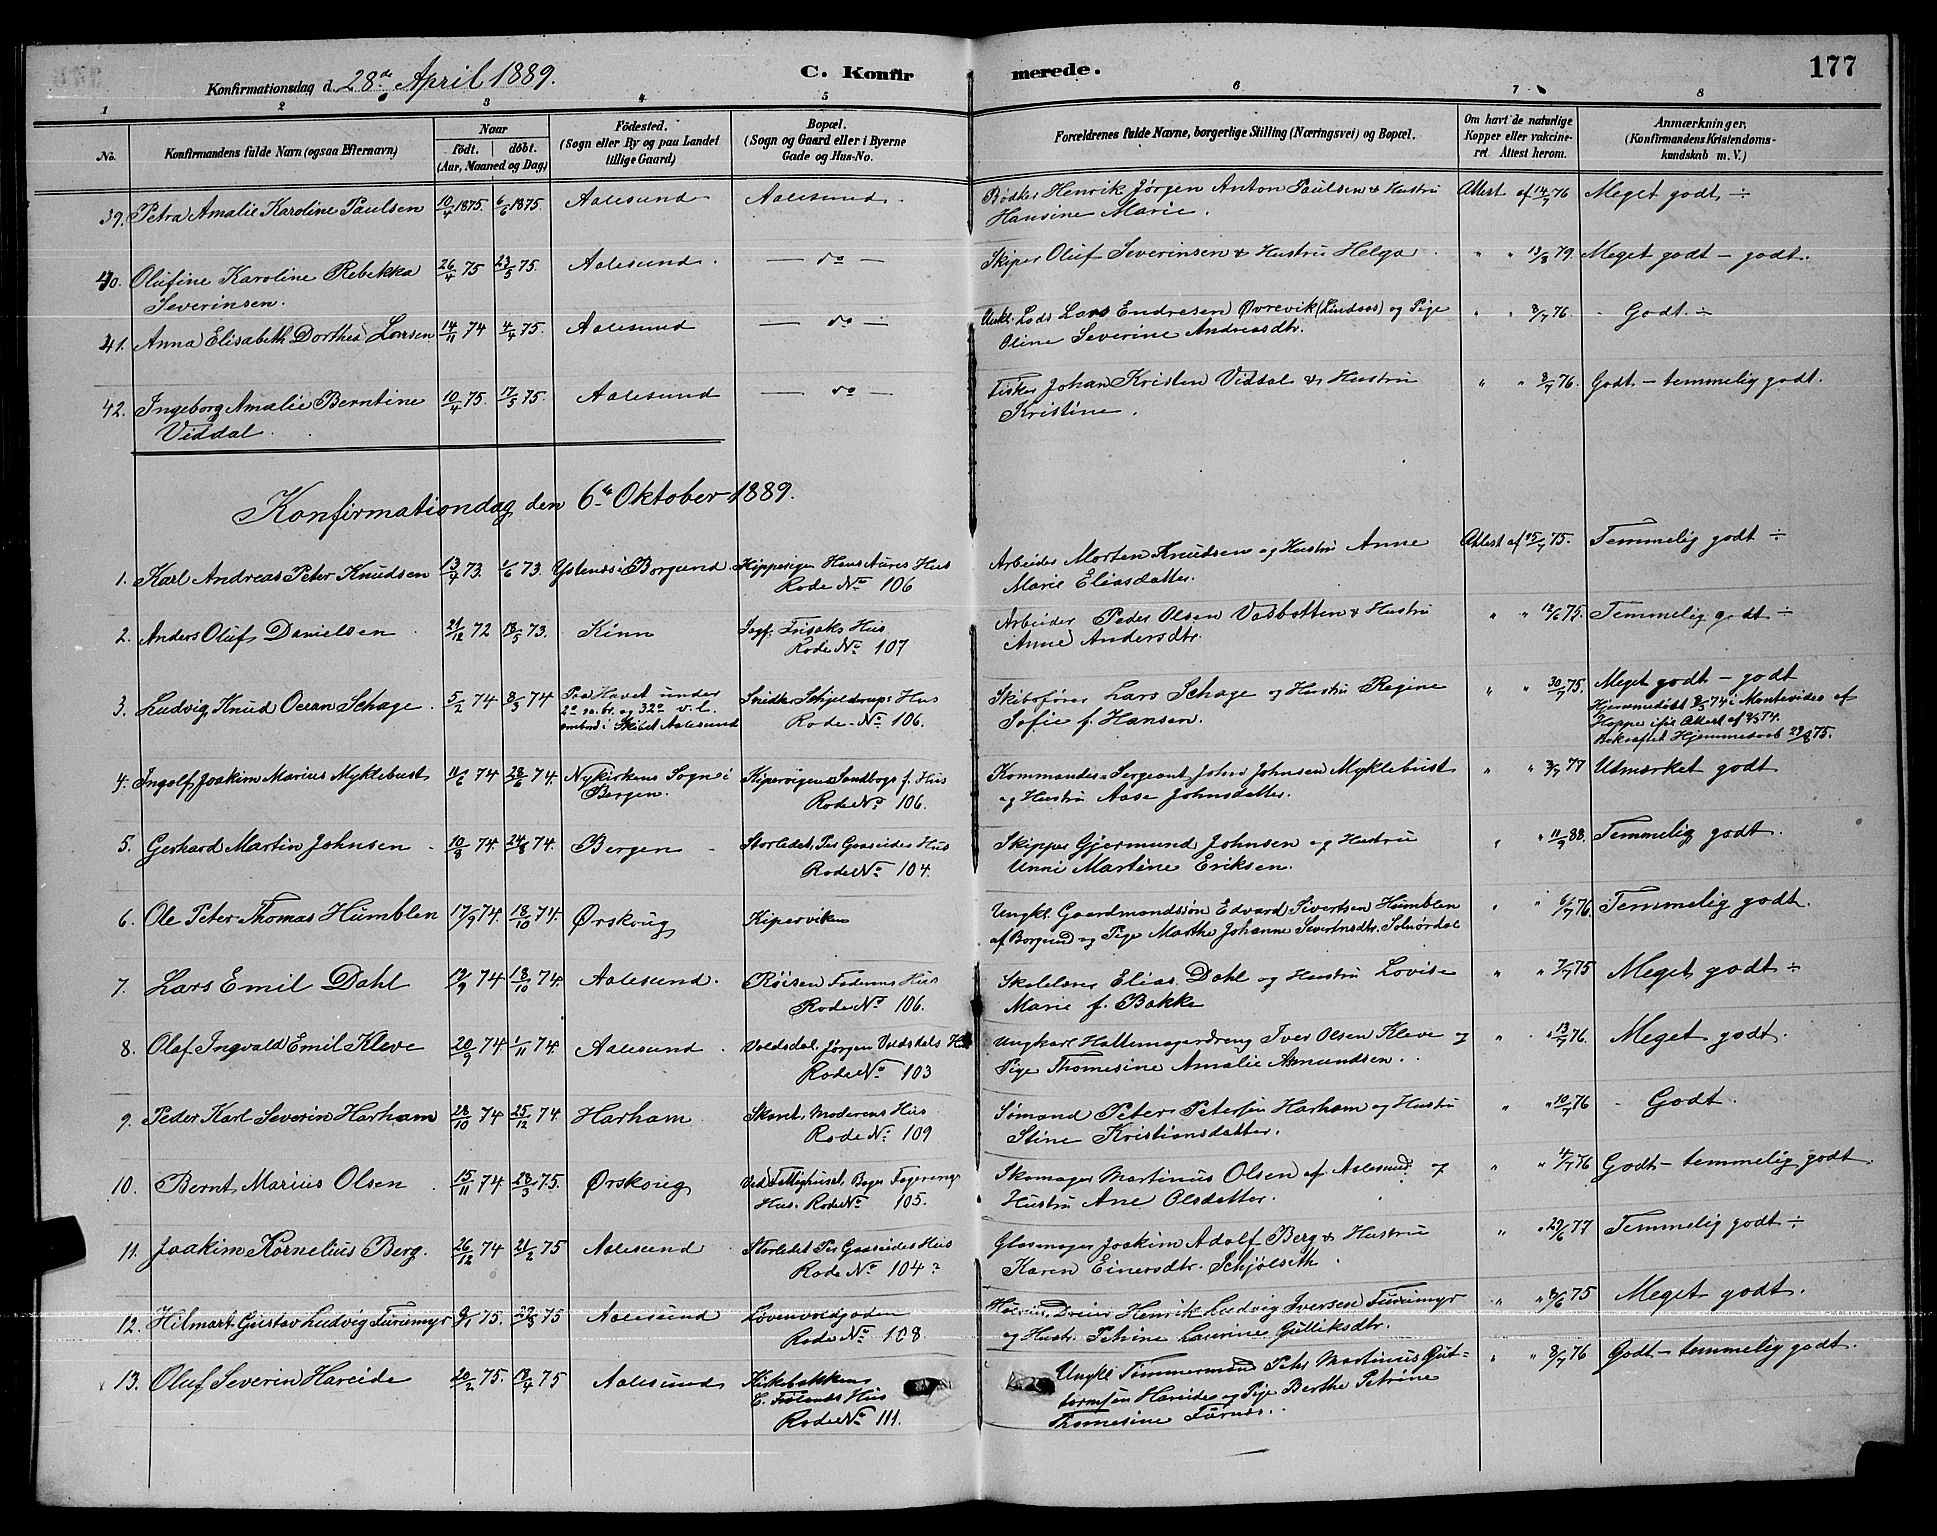 Konfirmationsdag d. 28de April 1889.
C. Konfirmerede.
177
1 2 3 4 5 6 7 8
No.
Konfirmandens fulde Navn (ogsaa Efternavn)
Naar
født. døbt.
(Aar, Maaned og Dag)
Fødested.
(Sogn eller By og paa Landet
tillige Gaard)
Bopæl.
(Sogn og Gaard eller i Byerne
Gade og Hus-No.
Forældrenes fulde Navne, borgerlige Stilling (Næringsvei) og Bopæl.
Om havt de naturlige
Kopper eller vakcine-
ret. Attest herom.
Anmærkninger.
(Konfirmandens Kristendoms-
kundskab m. V.)
39. Petra Amalie Karoline Paulsen 10/4 1875. 6/6 1875. Aalesund Aalesund. Bødker Henrik Jørgen Anton Paulsen & Hustru Attest af 14/7 76 Meget godt ÷
Hansine Marie.
40. Olufine Karoline Rebekka 26/4 75 23/5 75. Aalesund. — do — Skiper Oluf Severinsen & Hustru Helga " " 13/8 79. Meget godt – godt.
Severinsen.
41. Anna Elisabeth Dorthea Larsen 14/11 74 4/4 75. Aalesund — do — Unkl. Lods Lars Endresen Øvrevik (Lindaas) og Pige " " 8/7 76. Godt ÷
Oline Severine Andreasdtr.
42. Ingeborg Amalie Berntine 10/4 75. 17/5 75. Aalesund — do — Fisker Johan Kristen Viddal & Hustru " " 8/7 76. Godt – temmelig godt.
Viddal. Kristine.
Konfirmationdag den 6te Oktober 1889.
1. Karl Andreas Peter Knudsen 13/4 73. 1/6 73. Ystenes i Borgund Kippervigen Hans Aures Hus Arbeider Morten Knudsen og Hustru Anne Attest af 15/7 75. Temmelig godt ÷
Rode No 106 Marie Eliasdatter.
2. Anders Oluf Danielsen 21/12 72 18/5 73. Kinn Sagf. Frisaks Hus Arbeider Peder Olsen Vasbotten & Hustru " " 12/6 75. Temmelig godt ÷
Rode No 107 Anne Andersdtr.
3. Ludvig Knud Ocean Schage. 5/2 74 8/3 74 Paa Havet under Snedker Schjeldrups Hus Skibsfører Lars Schage og Hustru Regine " " 30/7 75. Meget godt – godt
2° sa. br. og 32° v. l. Rode No 106. Sofie f. Hansen. Hjemmedøbt 8/3 74 i Montevideo af
ombord i Skibet Aalesund Hoppe ifø. Attest af 9/3 74.
Bekræftet Hjemmedaab 29/8 75.
4. Ingolf Joakim Marius Myklebust 11/6 74 28/6 74. Nykirkens Sogn i Kipervigen Sandbogs f. Hus Kommander-Sergeant John Johnsen Myklebust " " 3/7 77 Udmærket godt
Bergen. Rode No 106. og Hustru Aase Johnsdatter.
5. Gerhard Martin Johnsen 10/8 74. 24/8 74. Bergen Storledet, Per Gaaseides Hus Skipper Gjermund Johnsen og Hustru " " 11/9 88. Temmelig godt.
Rode No 104. Unni Martine Eriksen.
6. Ole Peter Thomas Humblen 17/9 74. 18/10 74. Ørskoug Kiperviken Ungkl. Gaardmandssøn Edvard Sivertsen Humblen " " 6/7 76. Temmelig godt.
af Borgund og Pige Marthe Johanne Sivertsdtr. Solnørdal
7. Lars Emil Dahl 19/9 74 18/10 74. Aalesund. Røisen Faderens Hus Skolelærer Elias Dahl og Hustru Lovise " " 7/7 75 Meget godt ÷
Rode No 106. Marie f. Bakke
8. Olaf Ingvald Emil Kleve 20/9 74 1/11 74. Aalesund. Voldsdal. Jørgen Voldsdals Hus Ungkarl Hattemagerdreng Iver Olsen Kleve og " " 13/7 76. Meget godt.
Rode No 103 Pige Thomesine Amalie Amundsen.
9. Peder Karl Severin Harham 28/10 74 25/12 74 Harham. Skaret. Moderens Hus Sømand Peter Petersen Harham og Hustru " " 10/7 76 Godt.
Rode No. 109 Stine Kristiansdatter.
10. Bernt Marius Olsen 15/11 74 28/3 75. Ørskoug Ved Fattighuset, Bager Fagervings Skomager Martinus Olsen af Aalesund og " " 4/7 76 Godt – temmelig godt.
Hus. Rode No 105. Hustru Ane Olsdatter.
11. Joakim Kornelius Berg. 26/12 74 21/2 75 Aalesund Storledet Per Gaaseides Hus Glasmager Joakim Adolf Berg & Hustru " 29/6 77 Temmelig godt ÷
Rode No 104? Karen Einersdtr. Schjølseth.
12. Hilmart Gustav Ludvig Furumyr 9/1 75. 29/3 75 Aalesund Løvenvoldgaden Dreier Henrik Ludvig Iversen Furumyr " " 8/6 75 Meget godt.
Rode No 108. og Hustr. Petrine Laurine Gulliksdtr.
13. Oluf Severin Hareide 20/2 75. 19/4 75 Aalesund Kirkebakken Ungkl. Tømmermand Peter Martinius Gut- " " 8/7 76 Godt – temmelig godt.
Hus tormsen Hareide og Pige Berthe Petrine
Rode No 111. Thomesine Furnes.